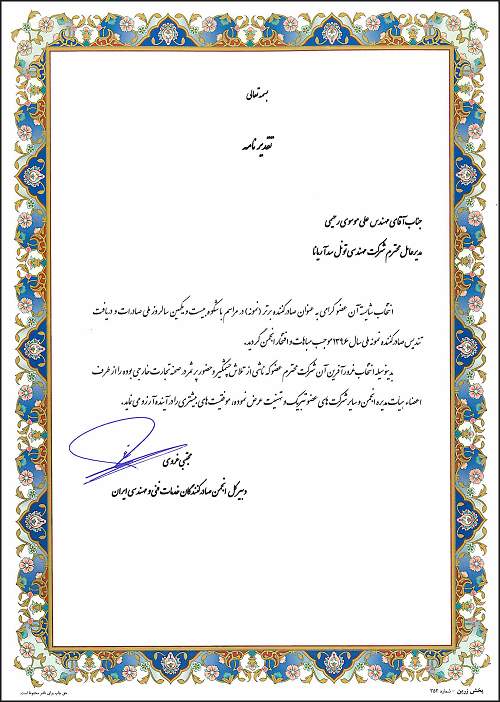 بسمه تعالی
تقدیر نامه
جناب آقای مهندس علی موسوی رحیمی
مدیر عامل محترم شرکت مهندسی تونل سد آریانا
انتخاب شایسته آن عضو گرامی به عنوان صادر کننده برتر (نمونه) در مراسم باشکوه بیست و یکمین سالروز ملی صادرات و دریافت
تندیس صادر کننده نمونه ملی سال ۱۳۹۶ موجب مباهات و افتخار انجمن گردید.
بدینوسیله انتخاب غرور آفرین آن شرکت محترم عضو که ناشی از تلاش چشمگیر و حضور پر ثمر در صحنه تجارت خارجی بوده را از طرف
اعضاء هیات مدیره انجمن و سایر شرکت های عضو تبریک و تهنیت عرض نموده، موفقیت های بیشتری را در آینده آرزو می نماید.
مجتبی خروی
دبیر کل انجمن صادر کنندگان خدمات فنی و مهندسی ایران
پخش زرین - شماره ۲۵۲
حق چاپ برای ناشر محفوظ است.